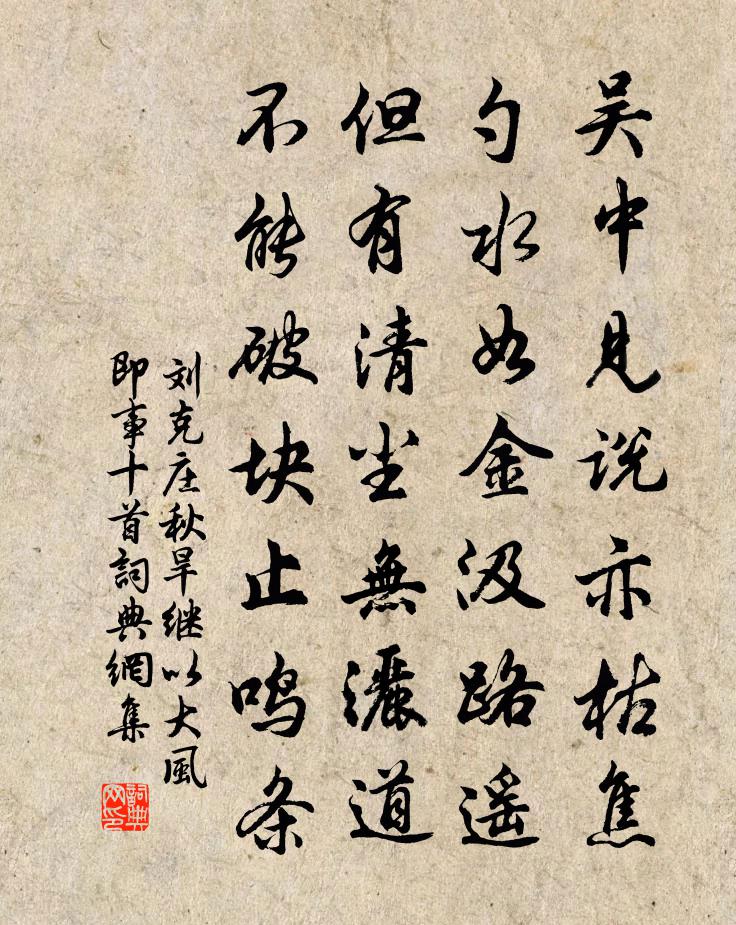 吴中見説亦枯焦
勺水如金汲路遥
但有清尘無灑道
不能破块止鸣条
刘克庄秋旱继以大風
即事十首詞典網集
詞典
网印